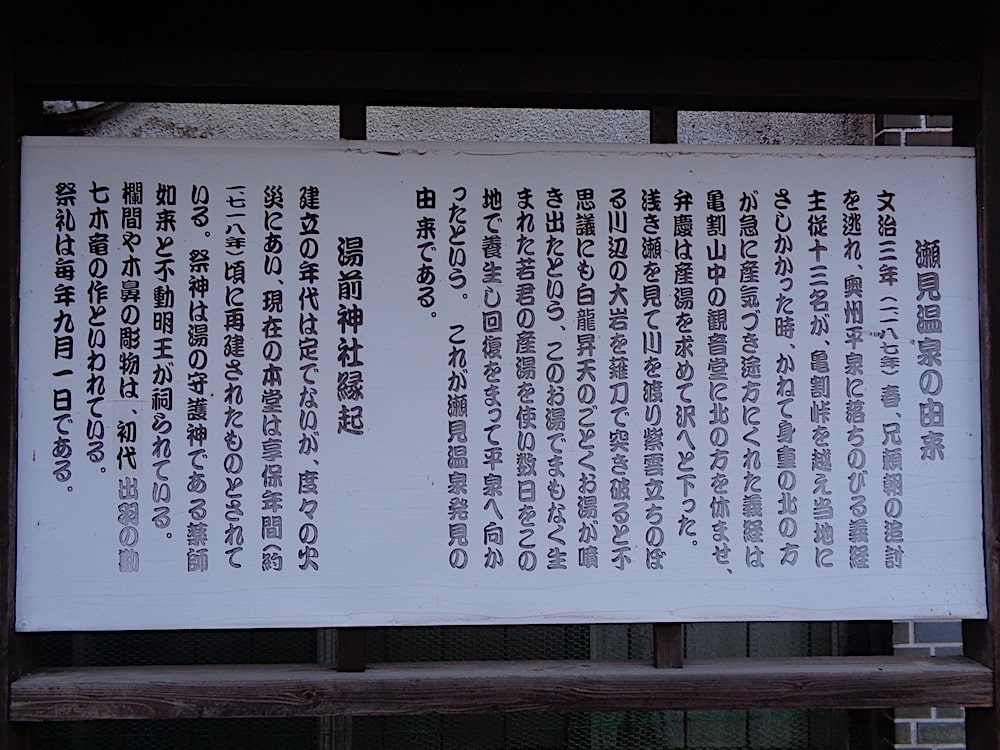 瀬見温泉の由来
文治三年(一一八七年)春、兄頼朝の追討
を逃れ、奥州平泉に落ちのびる義経
主従十三名が、亀割峠を越え当地に
さしかかった時、かねて身重の北の方
が急に産気づき途方にくれた義経は
亀割山中の観音堂に北の方を休ませ、
弁慶は産湯を求めて沢へと下った。
浅き瀬を見て川を渡り紫雲立ちのぼ
る川辺の大岩を薙刀で突き破ると不
思議にも白龍昇天のごとくお湯が噴
き出たという、このお湯でまもなく生
まれた若君の産湯を使い数日をこの
地で養生し回復をまって平泉へ向か
ったという。これが瀬見温泉発見の
由来である。
湯前神社縁起
建立の年代は定でないが、度々の火
災にあい、現在の本堂は享保年間(約
一、七一八年)頃に再建されたものとされて
いる。祭神は湯の守護神である薬師
如来と不動明王が祠られている。
欄間や木鼻の彫物は、初代出羽の勘
七木竜の作といわれている。
祭礼は毎年九月一日である。